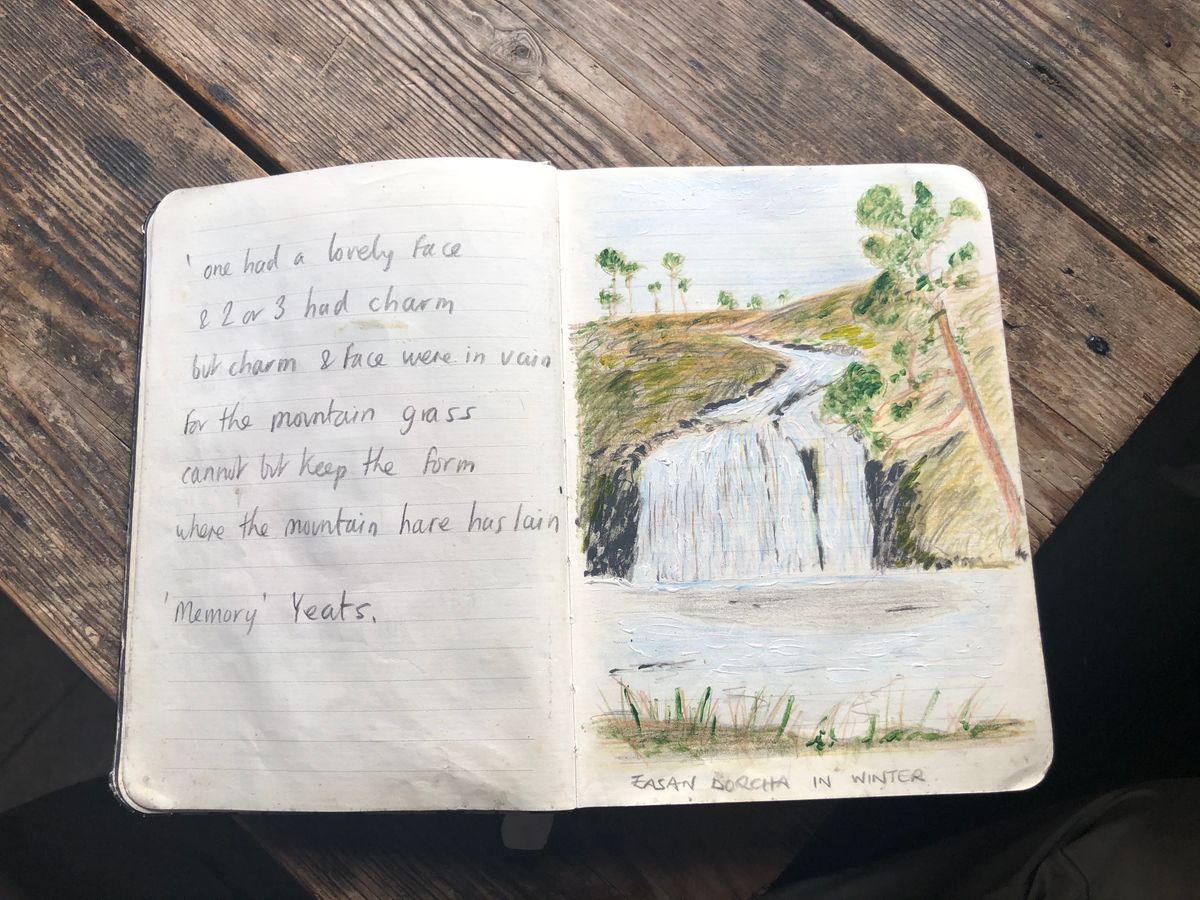 'one had a lovely face
& 2 or 3 had charm
but charm & face were in vain
for the mountain grass
cannot but keep the form
where the mountain hare has lain
'Memory' Yeats.
EASAN DORCHA IN WINTER